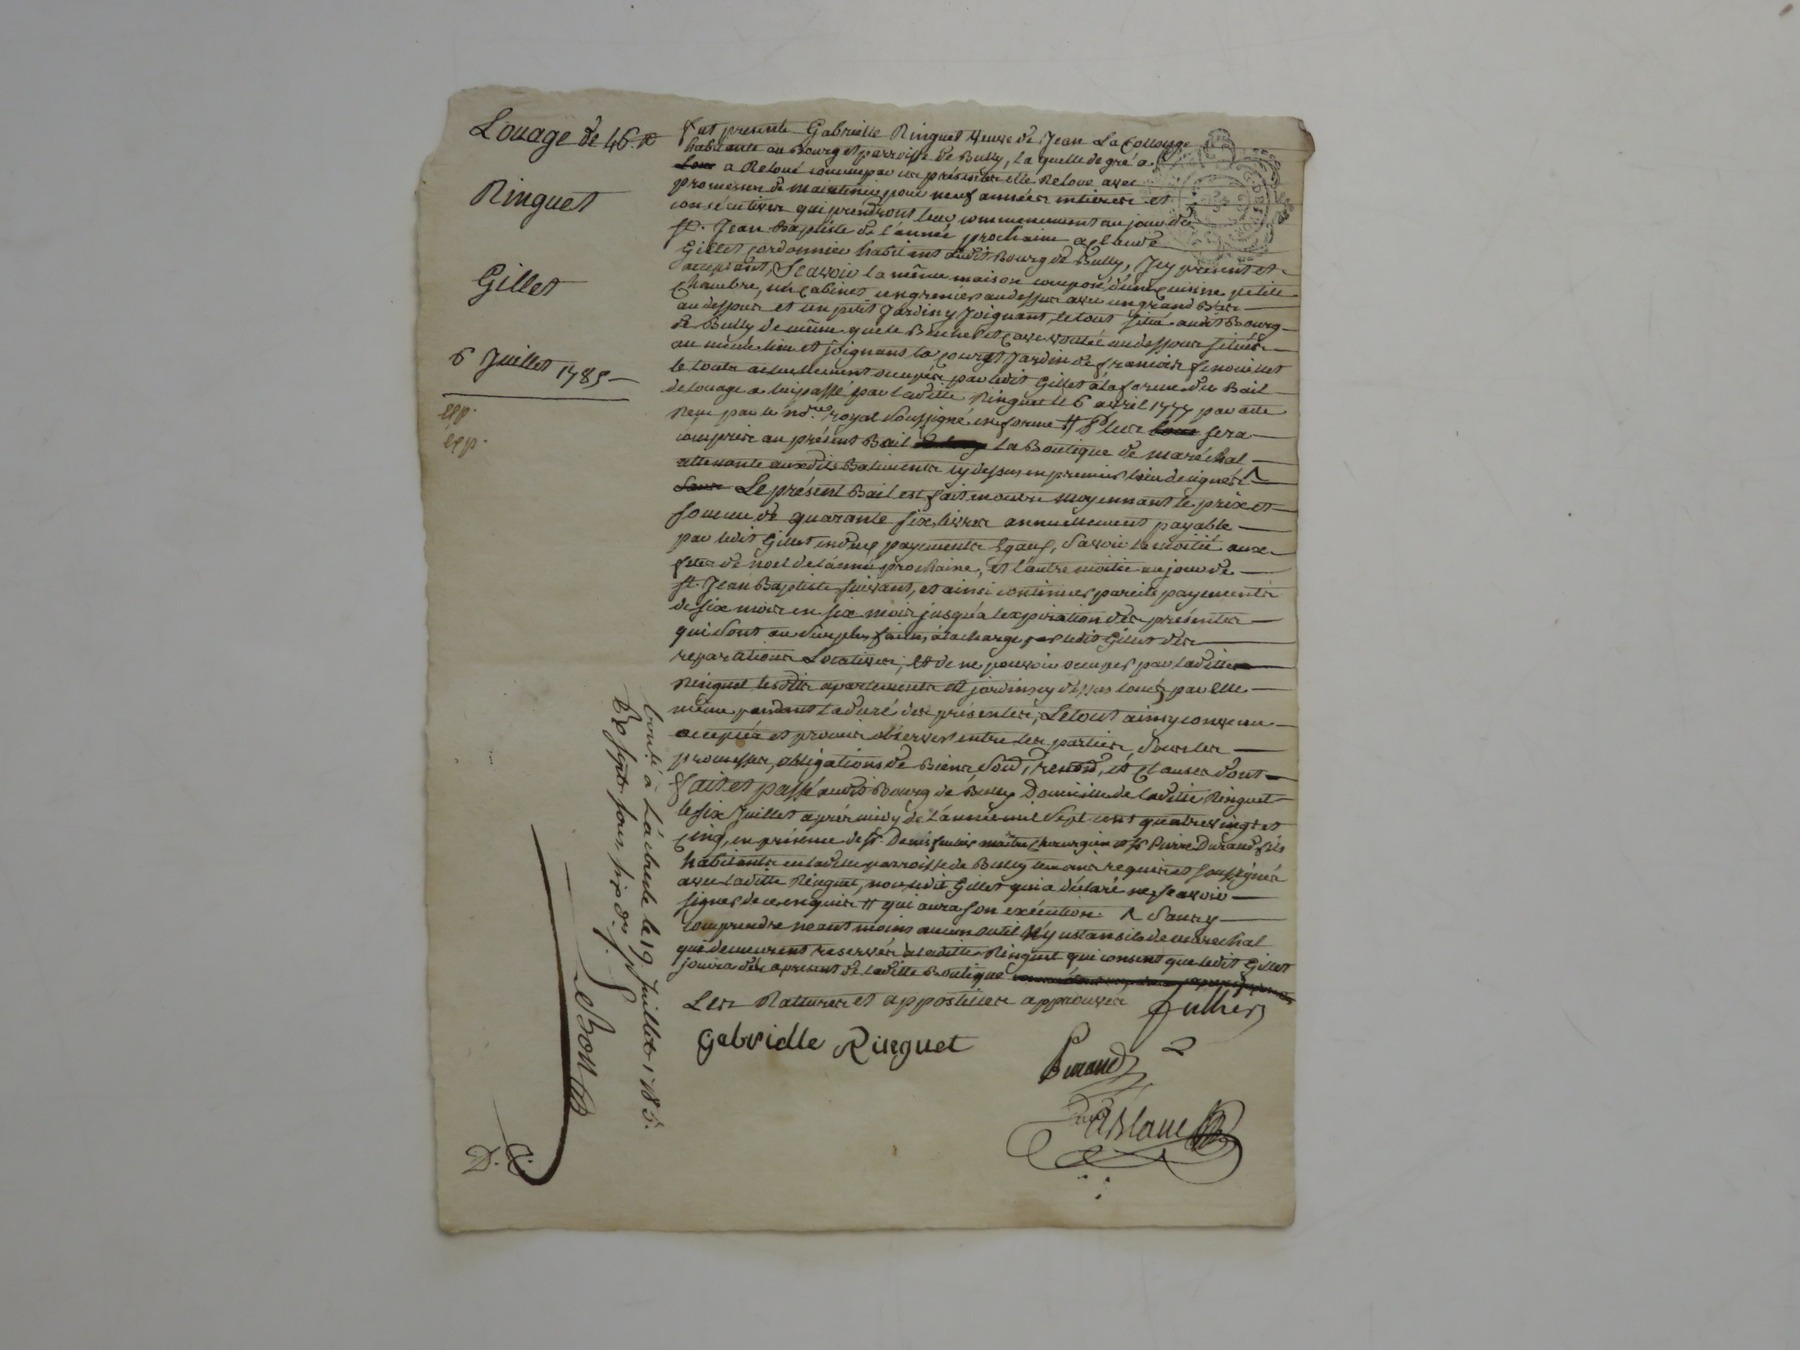 Louage de 46.tt
Ringuet
Gillet
6 Juillet 1785
exp.
exp.
fut presente Gabrielle Ringuet Veuve de Jean La Collonge
habitante au Bourg et parroisse de Bully, la quelle de gré a
a Reloué comme par ces présentes elle Reloue avec
promesse de maintenir pour neuf années entieres et
consécutives qui prendront leur commencement au jour de
st. Jean Baptiste de l'année prochaine a Claude
Gillet cordonnier habitant dudit Bourg de Bully, Icy présent et
acceptant, Sçavoir la même maison composé d'une Cuisine petite
Chambre, un Cabinet un grenier au dessus avec un grand
au dessous et un petit Jardin y Joignant, le tout situé audit Bourg
de Bully de même que le et Cave voutée au dessous située
au même lieu et joignant la Cour et Jardin de francois fenouillet
le tout actuellement occupée par ledit Gillet à la forme du Bail
de louage a lui passé par ladite Ringuet le 6 avril 1777 par acte
Reçu par le nore. royal Soussigné en forme # Plus sera
compris au présent Bail la Boutique de maréchal
attenante auxdits Batiments cy dessus en premier lieu designés ^
Le présent Bail est fait en outre moyennant le prix et
somme de quarante six livres annuellement payable
par ledit Gillet en deux payements Egaux, Savoir la moitié aux
fetes de noel de l'année prochaine, et l'autre moitié au jour de
st. Jean Baptiste suivant, et ainsi continuer pareils payements
de six mois en six mois jusqu'a l'expiration des présentes
qui sont au surplus faites, à la charge par ledit Gillet des
reparations Locatives, et de ne pouvoir occuper par ladite
Ringuet lesdits apartements et jardins cy dessus loués par elle
même pendant la duré des présentes, Le tout ainsy convenu
accepté et promis observer entre les parties, Sous les
promesses, obligations de Biens Soum, renon, et Clauses dont
fait et passé audit Bourg de Bully Domicille de ladite Ringuet
le six Juillet après midy de l'année mil Sept cent quatre vingt et
Cinq, en présence de sr. Denis maitre Chirurgien et sr Pierre Durand fils
habitants en ladite parroisse de Bully temoins requis et soussignés
avec ladite Ringuet, non ledit Gillet qui a déclaré ne sçavoir
signer de ce enquis # qui aura son exécution. ^ Sans y
comprendre néant moins aucun outil n'y ustansils de marechal
qui demeurent reservés a ladite Ringuet qui consent que ledit Gillet
jouira dès apresent de ladite Boutique
Les Ratures et appostilles approuvés
Gabrielle Ringuet
Durand
Conté à L'arbresle le 19 Juillet 1785.
D. C.